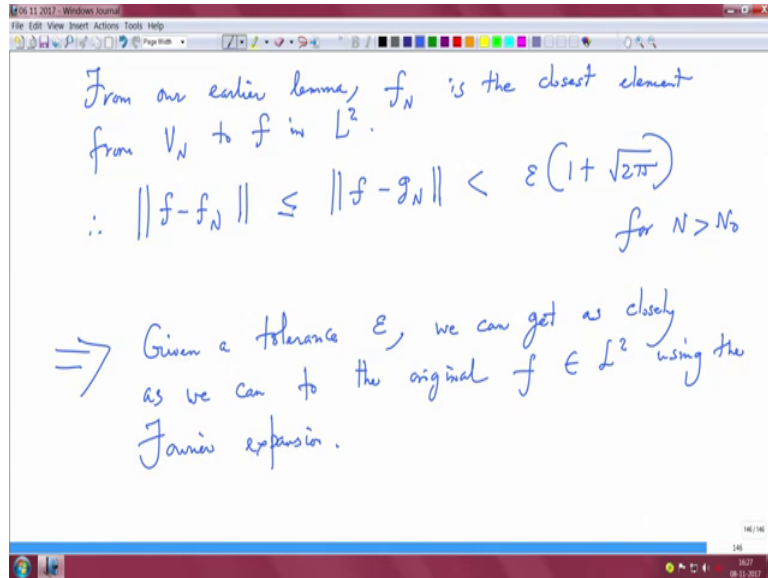 06 11 2017 - Windows Journal
File Edit View Insert Actions Tools Help
Page Width
B I
From our earlier lemma, f_N is the closest element
from V_N to f in L^2.
∴ ||f-f_N|| ≤ ||f-g_N|| < ε(1+√2π)
for N > N_0
⇒ Given a tolerance ε, we can get as closely
as we can to the original f ∈ L^2 using the
Fourier expansion.
146/146
146
16:27
08-11-2017